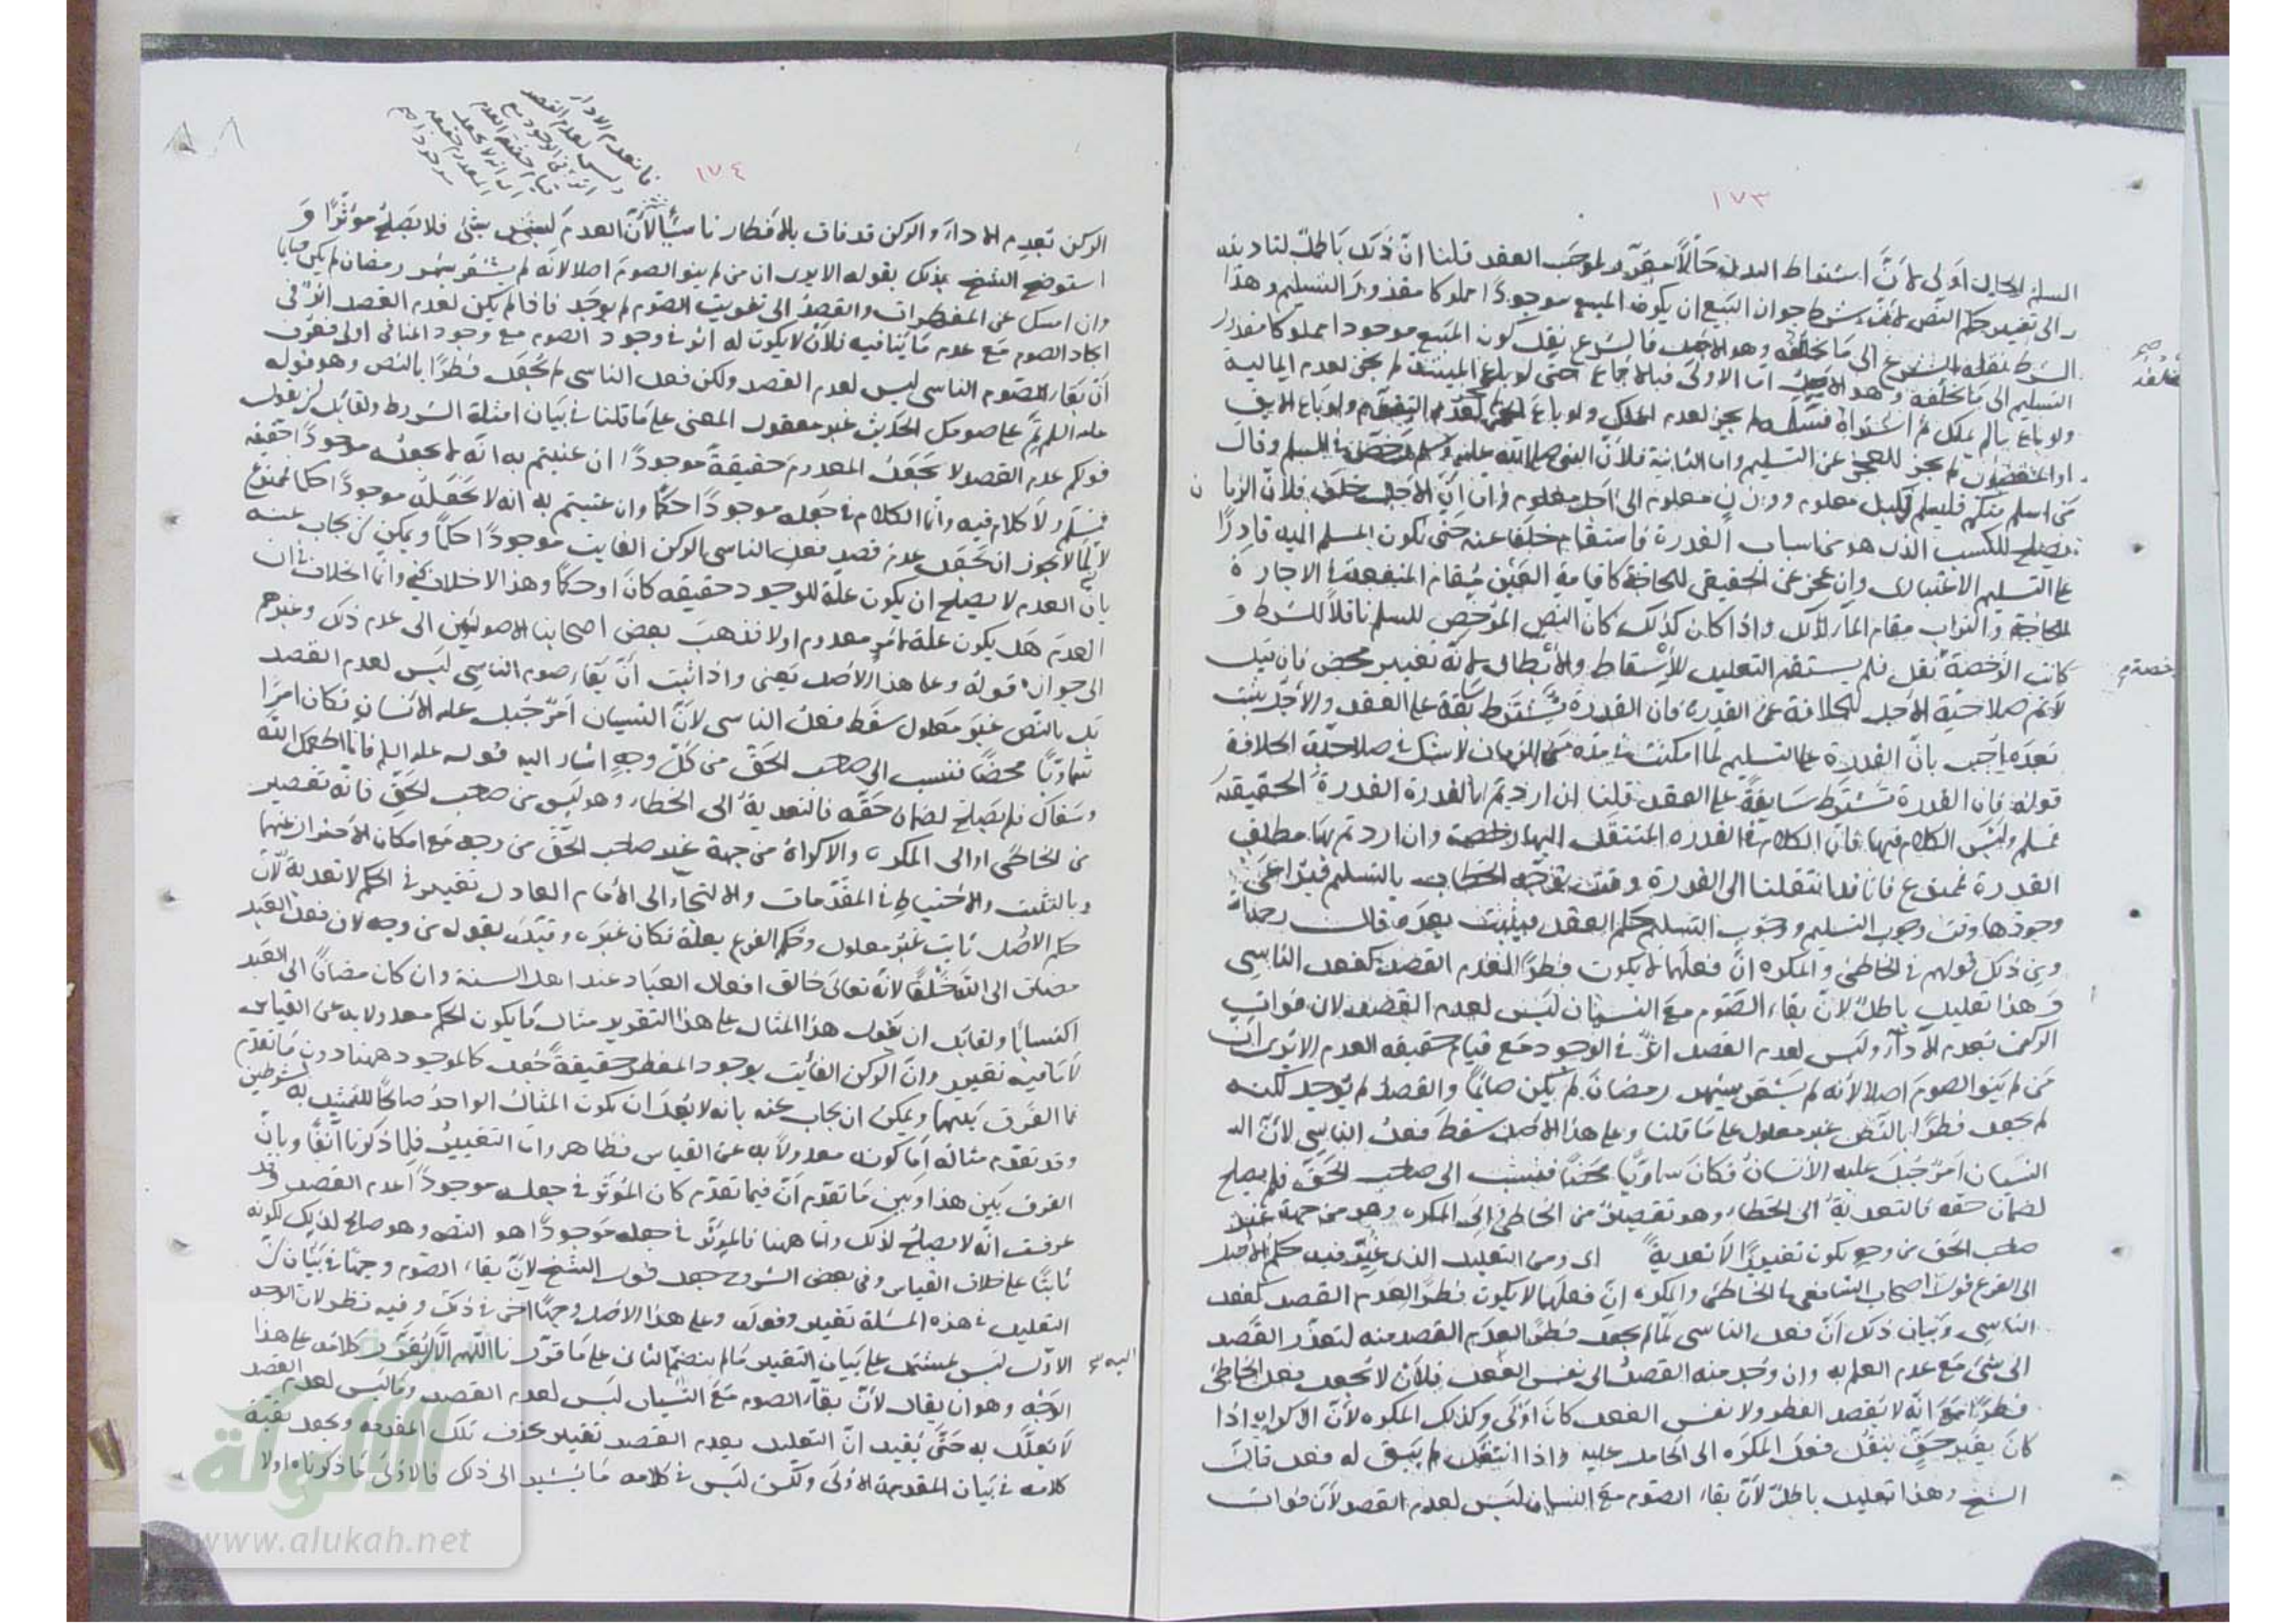 ١٧٣
السلم الحال اولى لان اشتراط البدل حالا مقرر لموجب العقد قلنا ان ذلك باطل لتاديته
الى تغيير حكم النص لان من شرط جواز البيع ان يكون المبيع موجودا مملوكا مقدور التسليم وهذا
الشرط نقله الشرع الى ما يخلفه وهو الاجل فالشرع نقل كون المبيع موجودا مملوكا مقدور
التسليم الى ما يخلفه وهو الاجل اما الاولى فبالاجماع حتى لو باع الميتة لم يجز لعدم المالية
ولو باع مالم يملك ثم اشتراه فسلمه لم يجز لعدم الملك ولو باع لعدم التقوم ولو باع الابق
او المغصوب لم يجز للعجز عن التسليم واما الثانية فلان النبي صلى الله عليه وسلم رخص في السلم وقال
من اسلم منكم فليسلم في كيل معلوم ووزن معلوم الى اجل معلوم واما ان الاجل خلف فلان الزمان
يصلح للكسب الذي هو من اسباب القدرة فاستقام خلفا عنه حتى يكون المسلم اليه قادرا
على التسليم الاعتباري وان عجز عن الحقيقي للحاجة كاقامة العين مقام المنفعة في الاجارة
للحاجة والتراب مقام الماء لذلك واذا كان كذلك كان النص المرخص للسلم ناقلا للشرط و
كانت الرخصة نقل فلم يستقم التعليل للاسقاط والابطال لانه تغيير محض فان قيل
لا نم صلاحية الاجل للخلافة عن القدرة فان القدرة تشترط سابقة على العقد والاجل يثبت
بعده اجيب بان القدرة على التسليم لما امكنت في مدة من الزمان لا شك في صلاحية الخلافة
قوله فان القدرة تشترط سابقة على العقد قلنا ان اردتم بالقدرة القدرة الحقيقية
فمسلم وليس الكلام فيها فان الكلام في القدرة المنتقل اليها رخصة وان اردتم بها مطلق
القدرة فممنوع فانا قد انتقلنا الى القدرة وقت توجه الخطاب بالتسليم فيراعى
وجودها وقت وجوب التسليم ووجوب التسليم حكم العقد فيثبت بعده قال رحمه الله
ومن ذلك قولهم في الخاطئ والمكره ان فعلهما لا يكون فطرا لعدم القصد كفعل الناسي
وهذا تعليل باطل لان بقاء الصوم مع النسيان ليس لعدم القصد لان فوات
الركن يعدم الاداء وليس لعدم القصد اثر في الوجود مع قيام حقيقة العدم الا يرى ان
من لم ينو الصوم اصلا لانه لم يشعر بشهر رمضان لم يكن صائما والقصد لم يوجد لكنه
لم يجعل فطرا بالنص غير معلول على ما قلنا وعلى هذا الاصل سقط فعل الناسي لان
النسيان امر جبل عليه الانسان فكان سماويا محضا فنسب الى صاحب الحق فلم يصلح
لضمان حقه فالتعدية الى الخطاء وهو تقصير من الخاطئ او الى المكره وهو من جهة غير
صاحب الحق من وجه يكون تغييرا لا تعدية اي ومن التعليل الذي غير فيه حكم الاصل
الى الفرع قول اصحاب الشافعي في الخاطئ والمكره ان فعلهما لا يكون فطرا لعدم القصد كفعل
الناسي وبيان ذلك ان فعل الناسي لما لم يجعل فطرا لعدم القصد منه لتعذر القصد
الى شئ مع عدم العلم به وان وجد منه القصد الى نفس الفعل فلان لا يجعل فعل الخاطئ
فطرا مع انه لا يقصد الفطر ولا نفس الفعل كان اولى وكذلك المكره لان الاكراه اذا
كان بغير حق ينقل فعل المكره الى الحامل عليه واذا انتقل لم يبق له فعل قال
الشيخ وهذا تعليل باطل لان بقاء الصوم مع النسيان ليس لعدم القصد لان فوات
١٧٤
فانعدم الاداء
وليس لعدم القصد
اثر في الوجود مع
قيام حقيقة العدم
الركن يعدم الاداء والركن قد فات بالافطار ناسيا لان العدم ليس بشئ فلا يصلح مؤثرا و
استوضح الشيخ بذلك بقوله الا يرى ان من لم ينو الصوم اصلا لانه لم يشعر بشهر رمضان لم يكن صايما
وان امسك عن المفطرات والقصد الى تفويت الصوم لم يوجد فاذا لم يكن لعدم القصد اثر في
ايجاد الصوم مع عدم ما ينافيه فلان لا يكون له اثر في وجود الصوم مع وجود المنافي اولى فعرف
ان بقاء الصوم الناسي ليس لعدم القصد ولكن فعل الناسي لم يجعل فطرا بالنص وهو قوله
عليه السلم تم على صومك الحديث غير معقول المعنى على ما قلنا في بيان امثلة الشرط ولقائل ان يقول
قولكم عدم القصد لا يجعل المعدوم حقيقة موجودا ان عنيتم به انه لم يجعله موجودا حقيقة
فمسلم ولا كلام فيه وانما الكلام في جعله موجودا حكما وان عنيتم به انه لا يجعله موجودا حكما فممنوع
لم لا يجوز ان يجعل عدم قصد فعل الناسي الركن الفايت موجودا حكما ويمكن ان يجاب عنه
بان العدم لا يصلح ان يكون علة للوجود حقيقة كان او حكما وهذا لا خلاف فيه وانما الخلاف في ان
العدم هل يكون علة لامر معدوم اولا فذهب بعض اصحابنا الاصوليين الى عدم ذلك وغيرهم
الى جوازه قوله وعلى هذا الاصل يعني واذا ثبت ان بقاء صوم الناسي ليس لعدم القصد
بل بالنص غير معلول سقط فعل الناسي لان النسيان امر جبل عليه الانسان فكان امرا
سماويا محضا فنسب الى صاحب الحق من كل وجه اشار اليه قوله عليه السلم فانما اطعمك الله
وسقاك فلم يصلح لضمان حقه فالتعدية الى الخطاء وهو ليس من صاحب الحق فانه تقصير
من الخاطئ او الى المكره والاكراه من جهة غير صاحب الحق من وجه مع امكان الاحتراز عنهما
بالتثبت والاحتياط في المقدمات والالتجاء الى الامام العادل تغيير في الحكم لا تعدية لان
حكم الاصل ثابت غير معلول وحكم الفرع بعلة فكان غيره وقيد بقوله من وجه لان فعل العبد
مضاف الى الله خلقا لانه تعالى خالق افعال العباد عند اهل السنة وان كان مضافا الى العبد
اكتسابا ولقائل ان يقول هذا المثال على هذا التقرير مثال ما يكون الحكم معدولا به عن القياس
لا ما فيه تغيير وان الركن الفايت بوجود المفطر حقيقة جعل كالموجود ههنا دون ما تقدم
فما الفرق بينهما ويمكن ان يجاب عنه بانه لا بعد ان يكون المثال الواحد صالحا للتمثيل به لشرطين
وقد تقدم مثاله اما كونه معدولا به عن القياس فظاهر واما التغيير فلما ذكرنا انفا وبان
الفرق بين هذا وبين ما تقدم ان فيما تقدم كان المؤثر في جعله موجودا عدم القصد وقد
عرفت انه لا يصلح لذلك واما ههنا فالمؤثر في جعله موجودا هو النص وهو صالح لذلك لكونه
ثابتا على خلاف القياس وفي بعض الشروح جعل قول الشيخ لان بقاء الصوم وجها في بيان ان
التعليل في هذه المسئلة تغيير وقوله وعلى هذا الاصل وجها اخر في ذلك وفيه نظر لان الوجه
الاول ليس بمشتمل على بيان التغيير مالم ينضم الثاني على ما قررنا اللهم الا ان يقرر كلامه على هذا
اليه صح
الوجه وهو ان يقال لان بقاء الصوم مع النسيان ليس لعدم القصد وما ليس لعدم القصد
لا يعلل به حتى يفيد ان التعليل بعدم القصد تغيير بحذف تلك المقدمة ويجعل بقية
كلامه في بيان المقدمة الاولى ولكن ليس في كلامه ما يشير الى ذلك فالاولى ما ذكرناه اولا
الألوكة
www.alukah.net